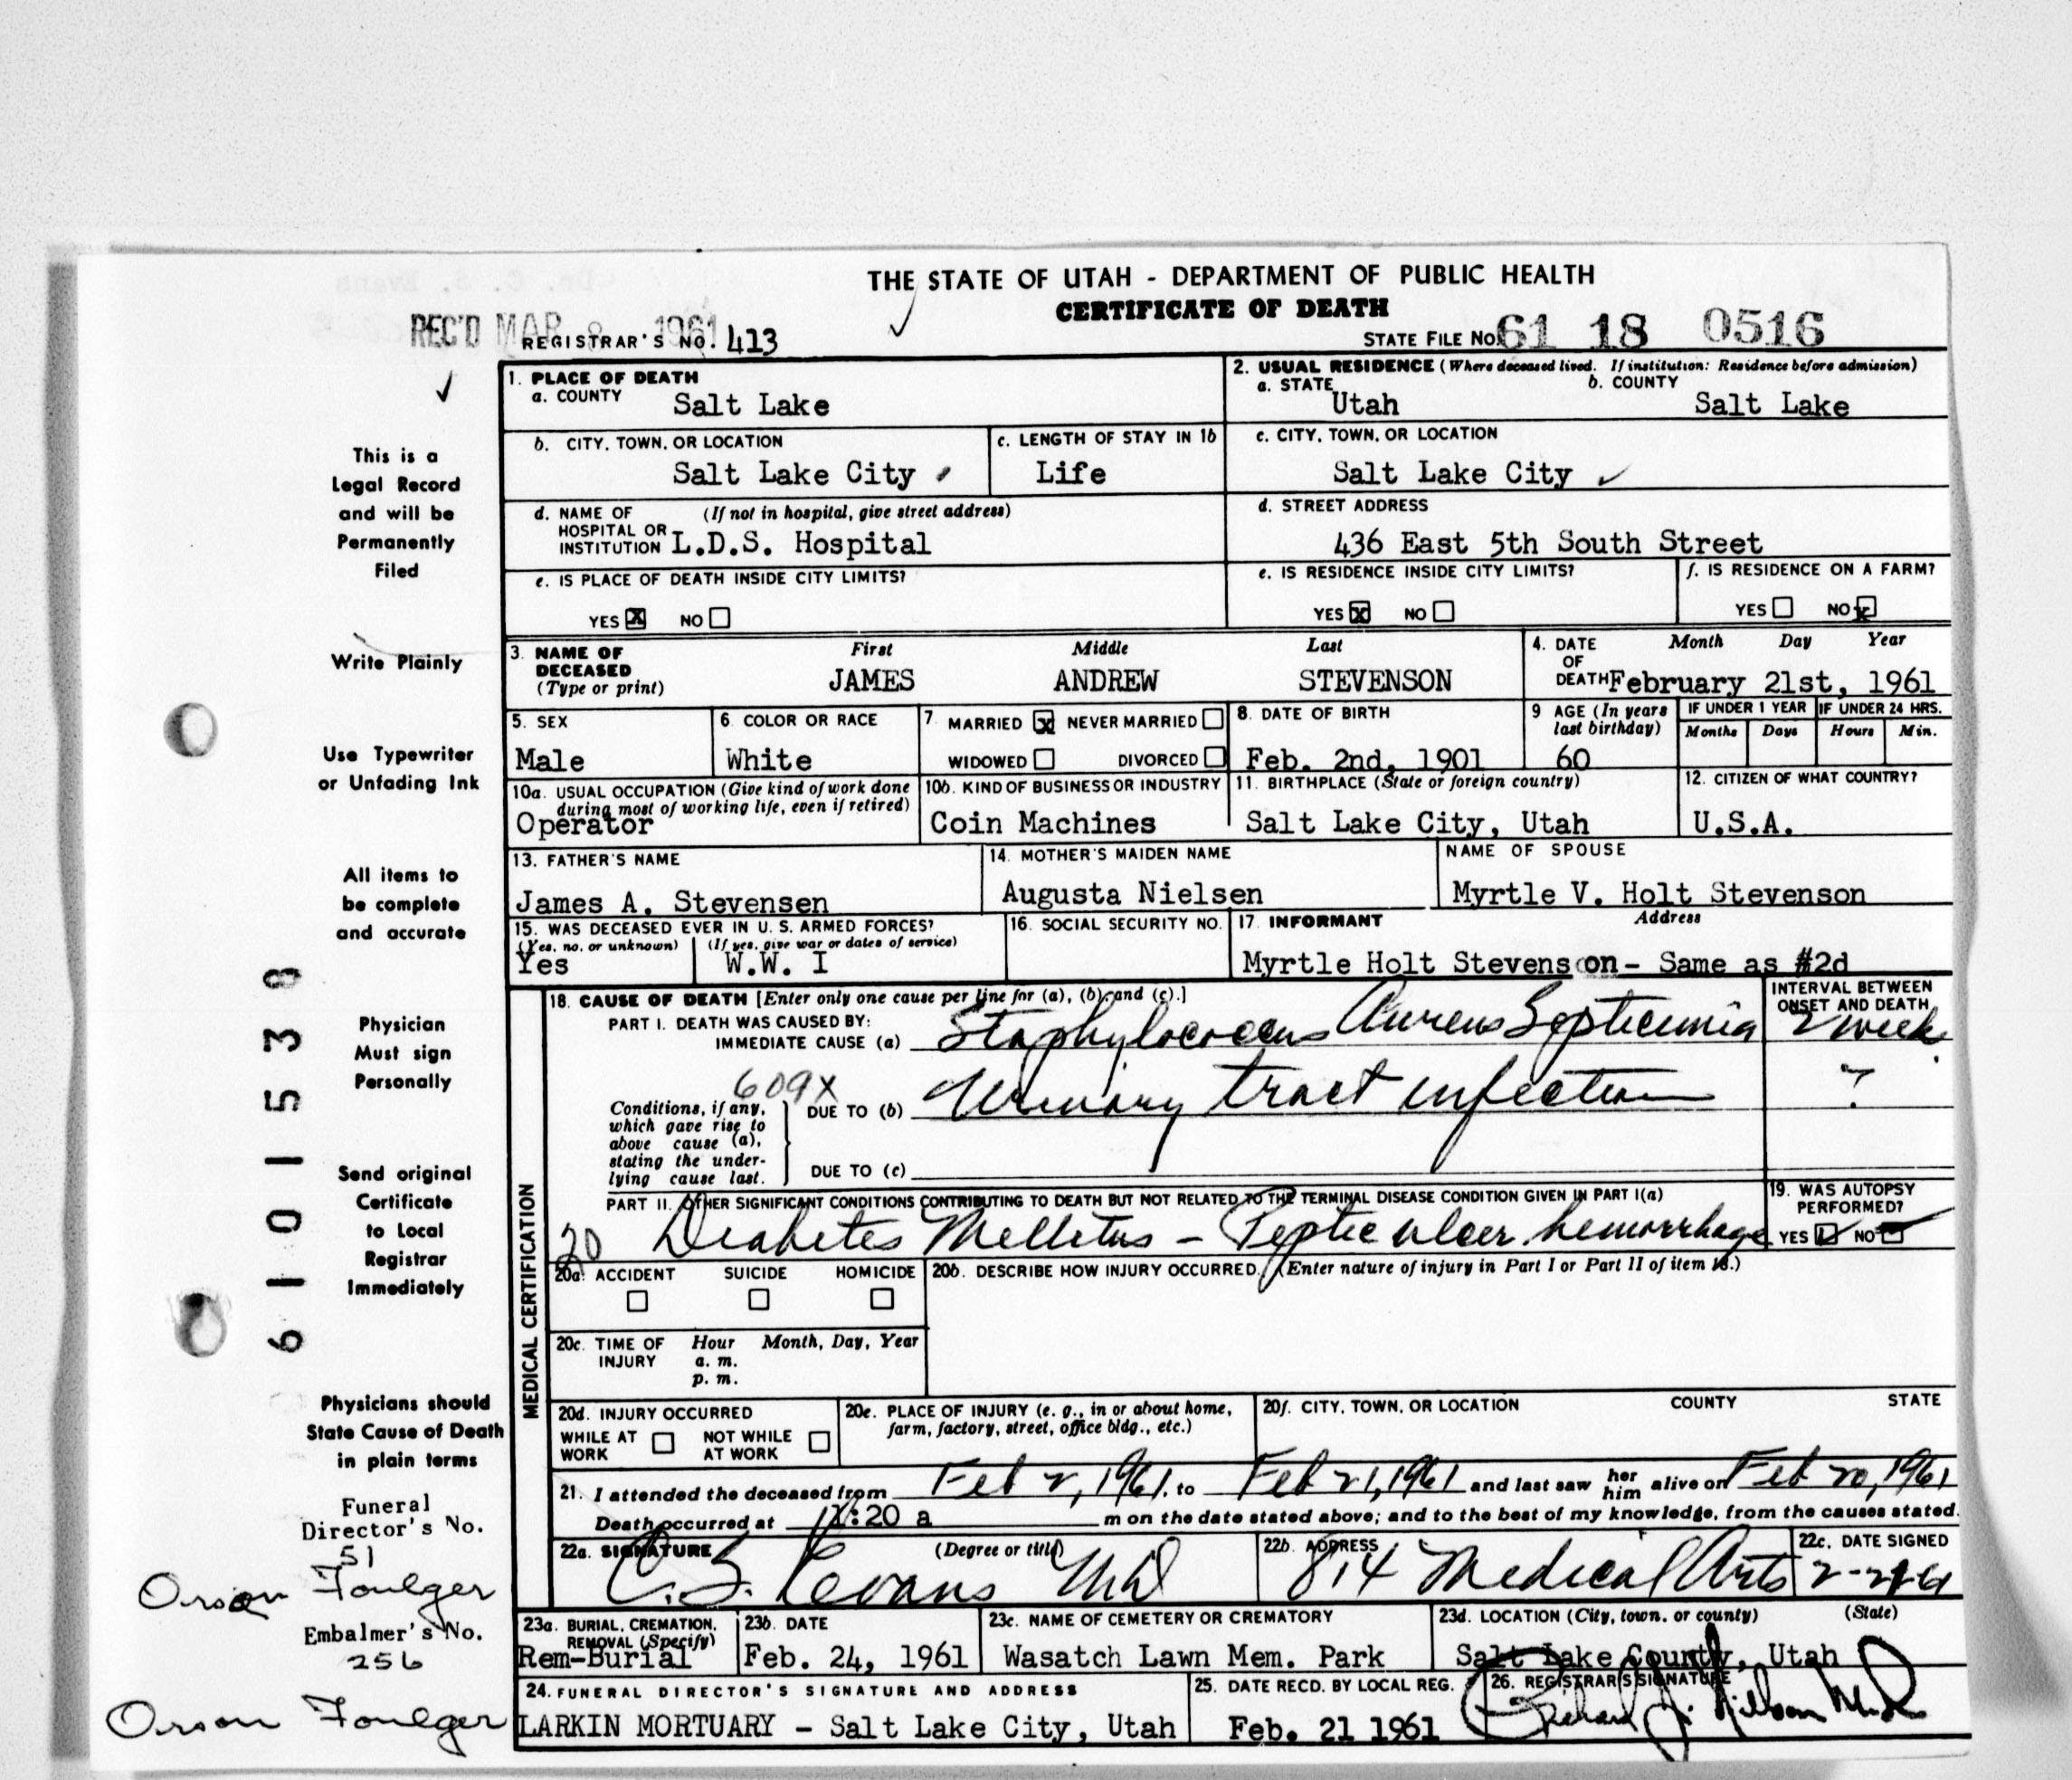 THE STATE OF UTAH - DEPARTMENT OF PUBLIC HEALTH
CERTIFICATE OF DEATH
REC'D MAR 1961 REGISTRAR'S NO. 413
STATE FILE NO. 61 18 0516
This is a
Legal Record
and will be
Permanently
Filed
Write Plainly
Use Typewriter
or Unfading Ink
All items to
be complete
and accurate
Physician
Must sign
Personally
Send original
Certificate
to Local
Registrar
Immediately
Physicians should
State Cause of Death
in plain terms
Funeral
Director's No.
51
Orson Foulger
Embalmer's No.
256
Orson Foulger
6101538
1. PLACE OF DEATH
a. COUNTY Salt Lake
2. USUAL RESIDENCE (Where deceased lived. If institution: Residence before admission)
a. STATE Utah b. COUNTY Salt Lake
b. CITY, TOWN, OR LOCATION Salt Lake City
c. LENGTH OF STAY IN 1b Life
c. CITY, TOWN, OR LOCATION Salt Lake City
d. NAME OF HOSPITAL OR INSTITUTION (If not in hospital, give street address) L.D.S. Hospital
d. STREET ADDRESS 436 East 5th South Street
e. IS PLACE OF DEATH INSIDE CITY LIMITS?
YES X NO
e. IS RESIDENCE INSIDE CITY LIMITS?
YES X NO
f. IS RESIDENCE ON A FARM?
YES NO X
3. NAME OF DECEASED (Type or print)
First Middle Last
JAMES ANDREW STEVENSON
4. DATE OF DEATH Month Day Year
February 21st, 1961
5. SEX Male
6. COLOR OR RACE White
7. MARRIED X NEVER MARRIED
WIDOWED DIVORCED
8. DATE OF BIRTH Feb. 2nd, 1901
9 AGE (In years last birthday) 60
IF UNDER 1 YEAR Months Days
IF UNDER 24 HRS. Hours Min.
10a. USUAL OCCUPATION (Give kind of work done during most of working life, even if retired) Operator
10b. KIND OF BUSINESS OR INDUSTRY Coin Machines
11. BIRTHPLACE (State or foreign country) Salt Lake City, Utah
12. CITIZEN OF WHAT COUNTRY? U.S.A.
13. FATHER'S NAME James A. Stevensen
14. MOTHER'S MAIDEN NAME Augusta Nielsen
NAME OF SPOUSE Myrtle V. Holt Stevenson
15. WAS DECEASED EVER IN U. S. ARMED FORCES?
(Yes, no, or unknown) Yes (If yes, give war or dates of service) W.W. I
16. SOCIAL SECURITY NO.
17. INFORMANT Address
Myrtle Holt Stevenson - Same as #2d
MEDICAL CERTIFICATION
18. CAUSE OF DEATH [Enter only one cause per line for (a), (b), and (c).]
INTERVAL BETWEEN ONSET AND DEATH
PART I. DEATH WAS CAUSED BY:
IMMEDIATE CAUSE (a) Staphylococcus Aureus Septicemia 2 week
609X
Conditions, if any, which gave rise to above cause (a), stating the underlying cause last.
DUE TO (b) Urinary tract infection ?
DUE TO (c)
PART II. OTHER SIGNIFICANT CONDITIONS CONTRIBUTING TO DEATH BUT NOT RELATED TO THE TERMINAL DISEASE CONDITION GIVEN IN PART I(a)
20 Diabetes Mellitus - Peptic ulcer hemorrhage
19. WAS AUTOPSY PERFORMED?
YES NO
20a. ACCIDENT SUICIDE HOMICIDE
20b. DESCRIBE HOW INJURY OCCURRED. (Enter nature of injury in Part I or Part II of item 18.)
20c. TIME OF INJURY Hour a. m. p. m. Month, Day, Year
20d. INJURY OCCURRED
WHILE AT WORK NOT WHILE AT WORK
20e. PLACE OF INJURY (e. g., in or about home, farm, factory, street, office bldg., etc.)
20f. CITY, TOWN, OR LOCATION COUNTY STATE
21. I attended the deceased from Feb 2, 1961, to Feb 21, 1961 and last saw her him alive on Feb 20, 1961
Death occurred at :20 a m on the date stated above; and to the best of my knowledge, from the causes stated.
22a. SIGNATURE (Degree or title)
C.S. Evans MD
22b. ADDRESS 814 Medical Arts
22c. DATE SIGNED
23a. BURIAL, CREMATION, REMOVAL (Specify) Rem-Burial
23b. DATE Feb. 24, 1961
23c. NAME OF CEMETERY OR CREMATORY Wasatch Lawn Mem. Park
23d. LOCATION (City, town, or county) (State) Salt Lake County, Utah
24. FUNERAL DIRECTOR'S SIGNATURE AND ADDRESS
LARKIN MORTUARY - Salt Lake City, Utah
25. DATE RECD. BY LOCAL REG. Feb. 21 1961
26. REGISTRAR'S SIGNATURE